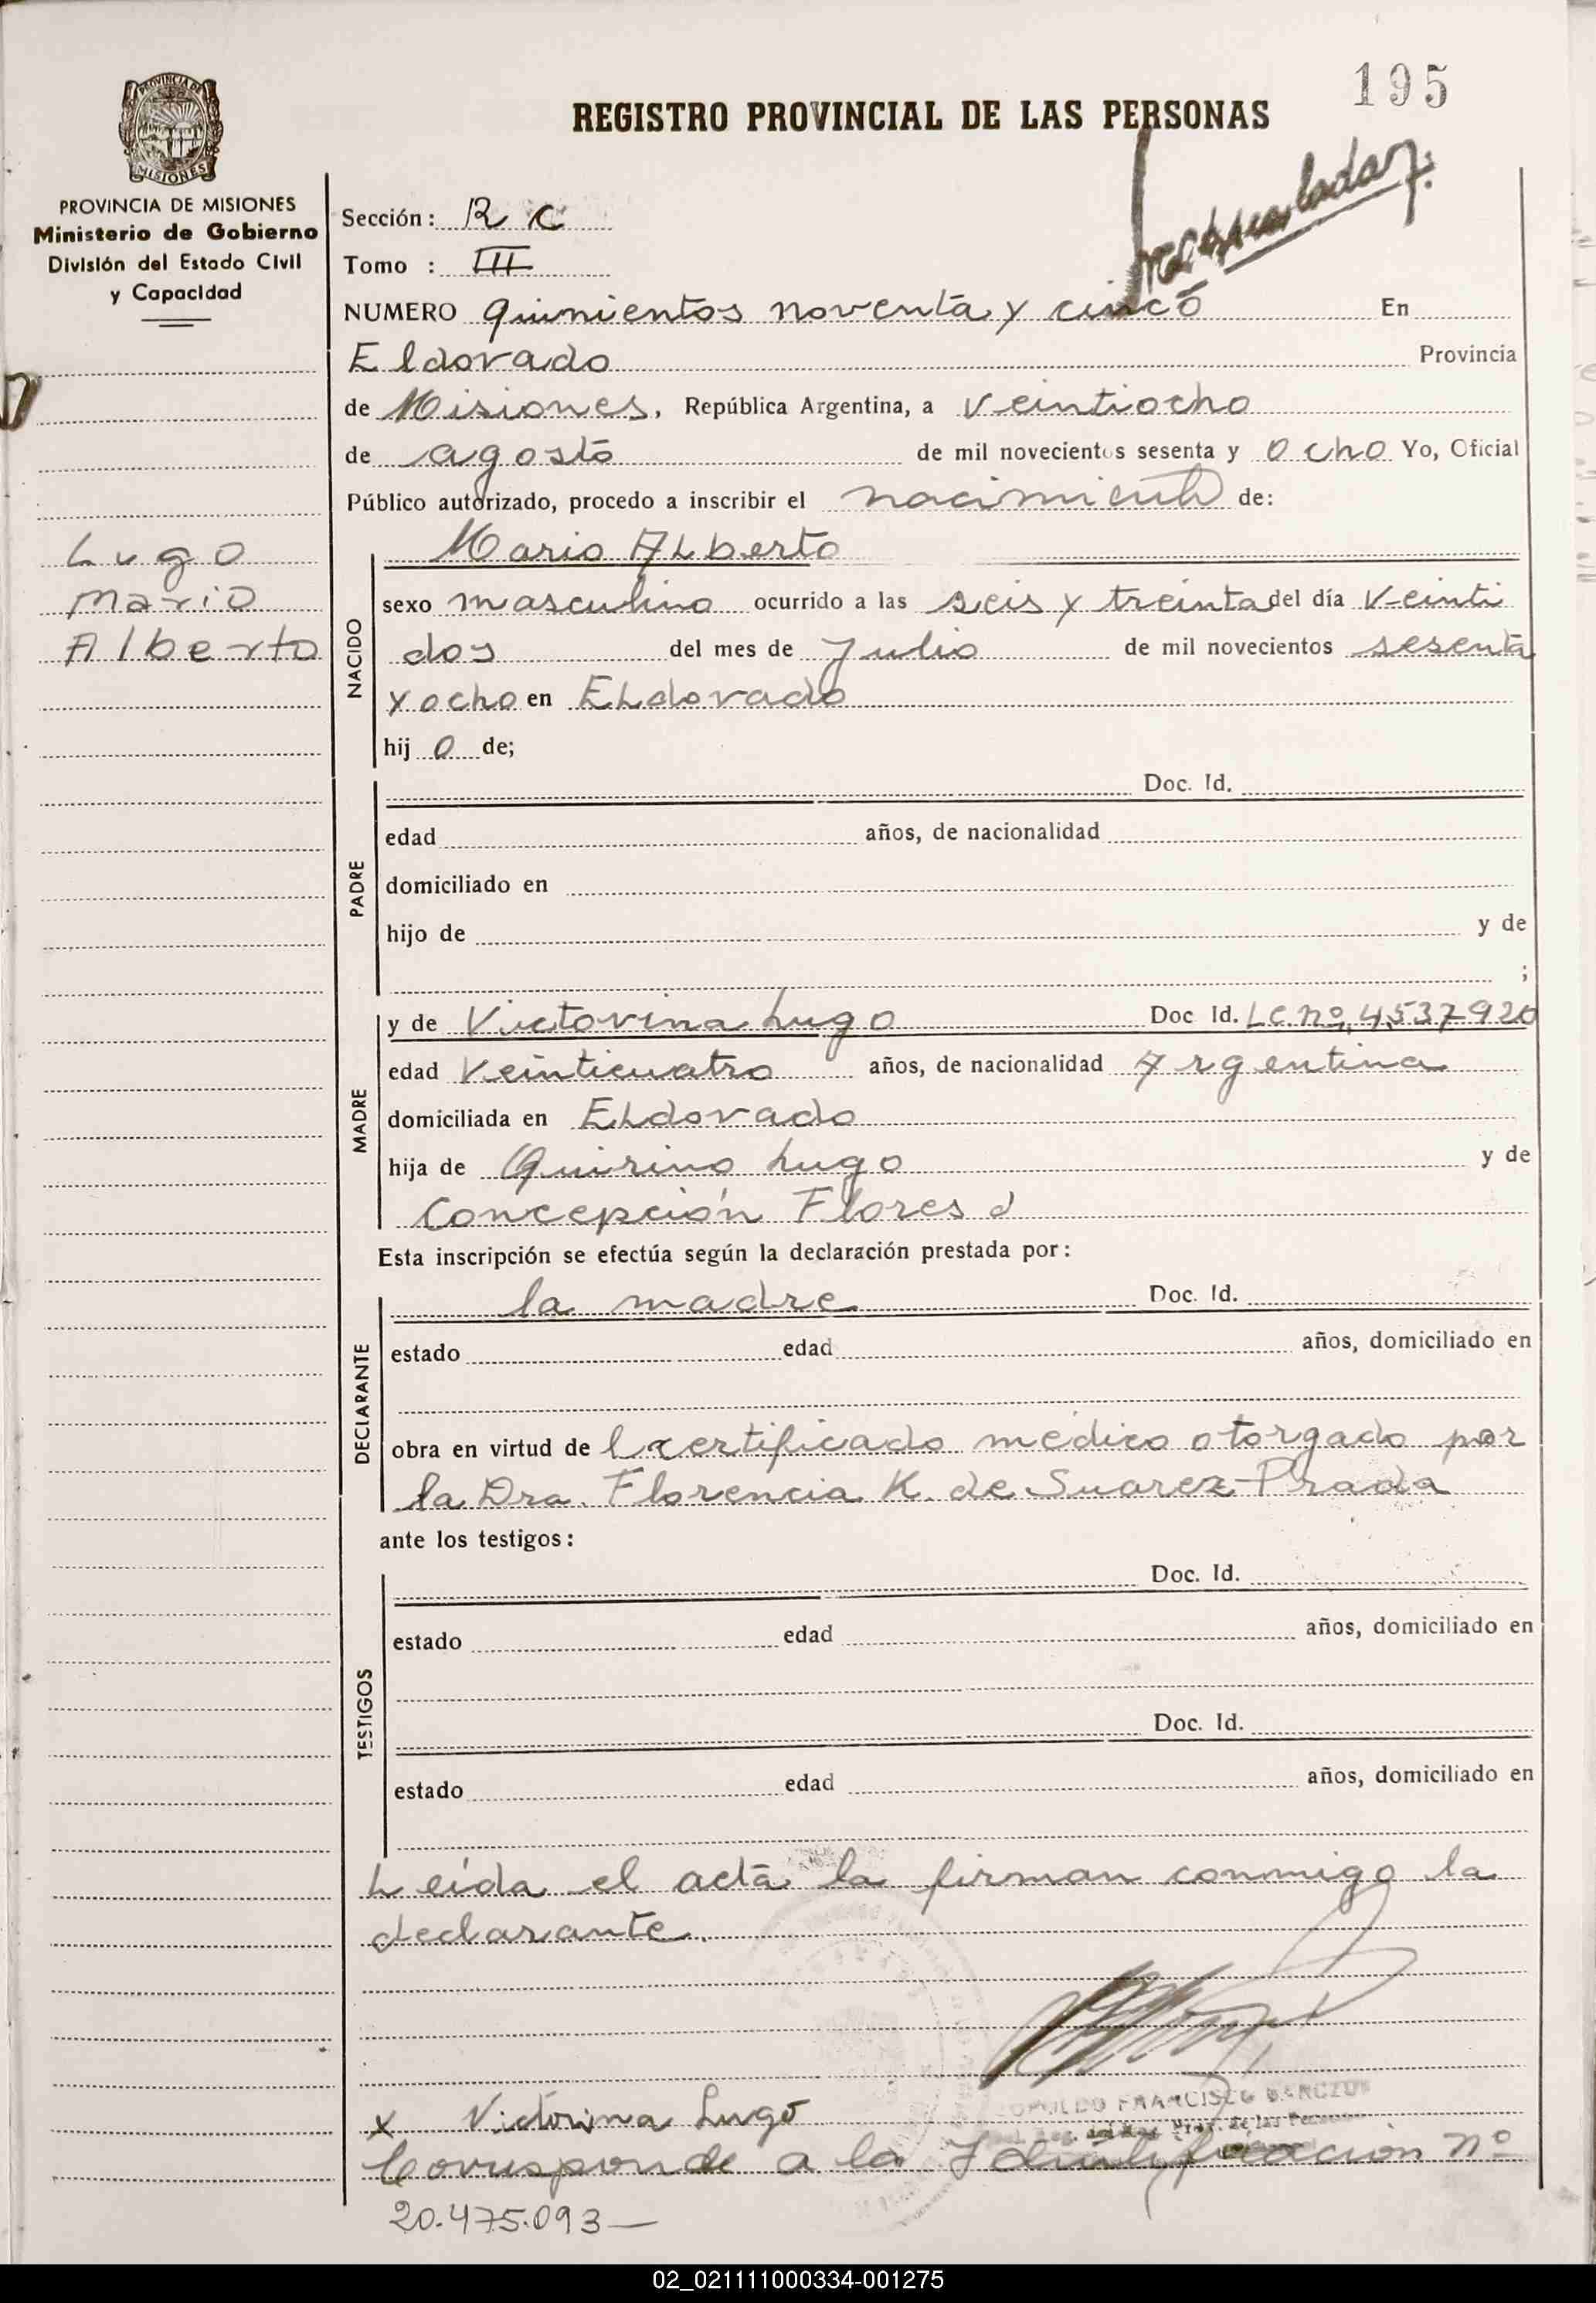 195
REGISTRO PROVINCIAL DE LAS PERSONAS
PROVINCIA DE
MISIONES
PROVINCIA DE MISIONES
Ministerio de Gobierno
División del Estado Civil
y Capacidad
Lugo
Mario
Alberto
Sección: R C
Tomo : III
NUMERO quinientos noventa y cinco En
Eldorado Provincia
de Misiones, República Argentina, a veintiocho
de agosto de mil novecientos sesenta y ocho Yo, Oficial
Público autorizado, procedo a inscribir el nacimiento de:
NACIDO
Mario Alberto
sexo masculino ocurrido a las seis y treinta del día veinti
dos del mes de Julio de mil novecientos sesenta
y ocho en Eldorado
hij o de;
PADRE
Doc. Id.
edad años, de nacionalidad
domiciliado en
hijo de y de
;
MADRE
y de Victorina Lugo Doc Id. LC. nº 4537920
edad veinticuatro años, de nacionalidad Argentina
domiciliada en Eldorado
hija de Quirino Lugo y de
Concepción Flores
Esta inscripción se efectúa según la declaración prestada por:
DECLARANTE
la madre Doc. Id.
estado edad años, domiciliado en
obra en virtud de l certificado médico otorgado por
la Dra. Florencia K. de Suarez Prada
ante los testigos:
TESTIGOS
Doc. Id.
estado edad años, domiciliado en
Doc. Id.
estado edad años, domiciliado en
Leída el acta la firman conmigo la
declarante.
x Victorina Lugo
FRANCISCO
Corresponde a la Identificación nº
20.475.093—
02_021111000334-001275